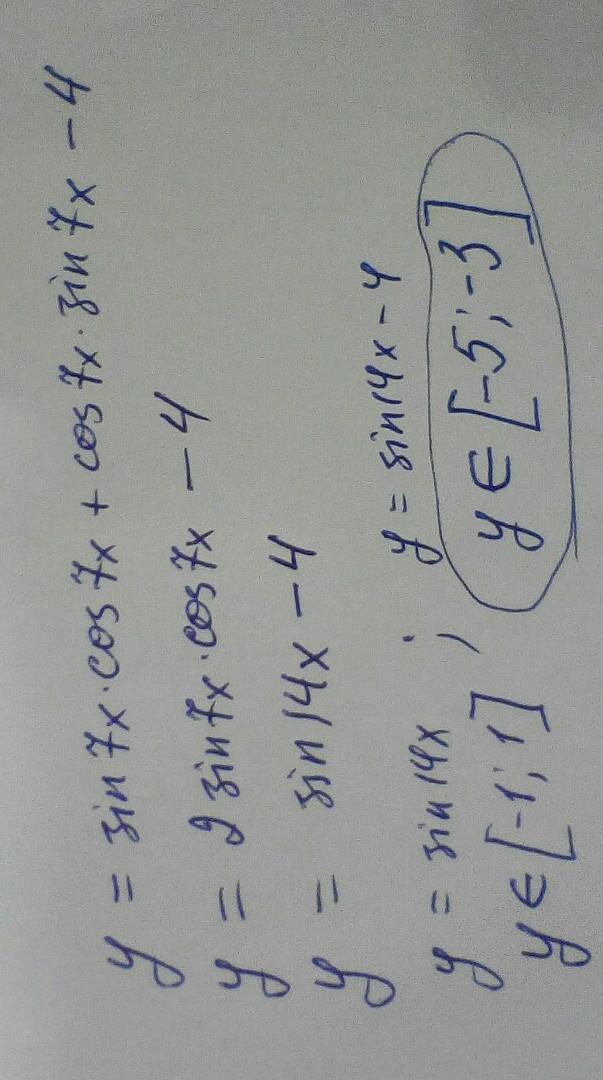 y = sin7x·cos7x + cos7x·sin7x − 4
y = 2 sin7x·cos7x − 4
y = sin14x − 4
y = sin14x ; y = sin14x − 4
y ∈ [-1; 1] y ∈ [-5; -3]